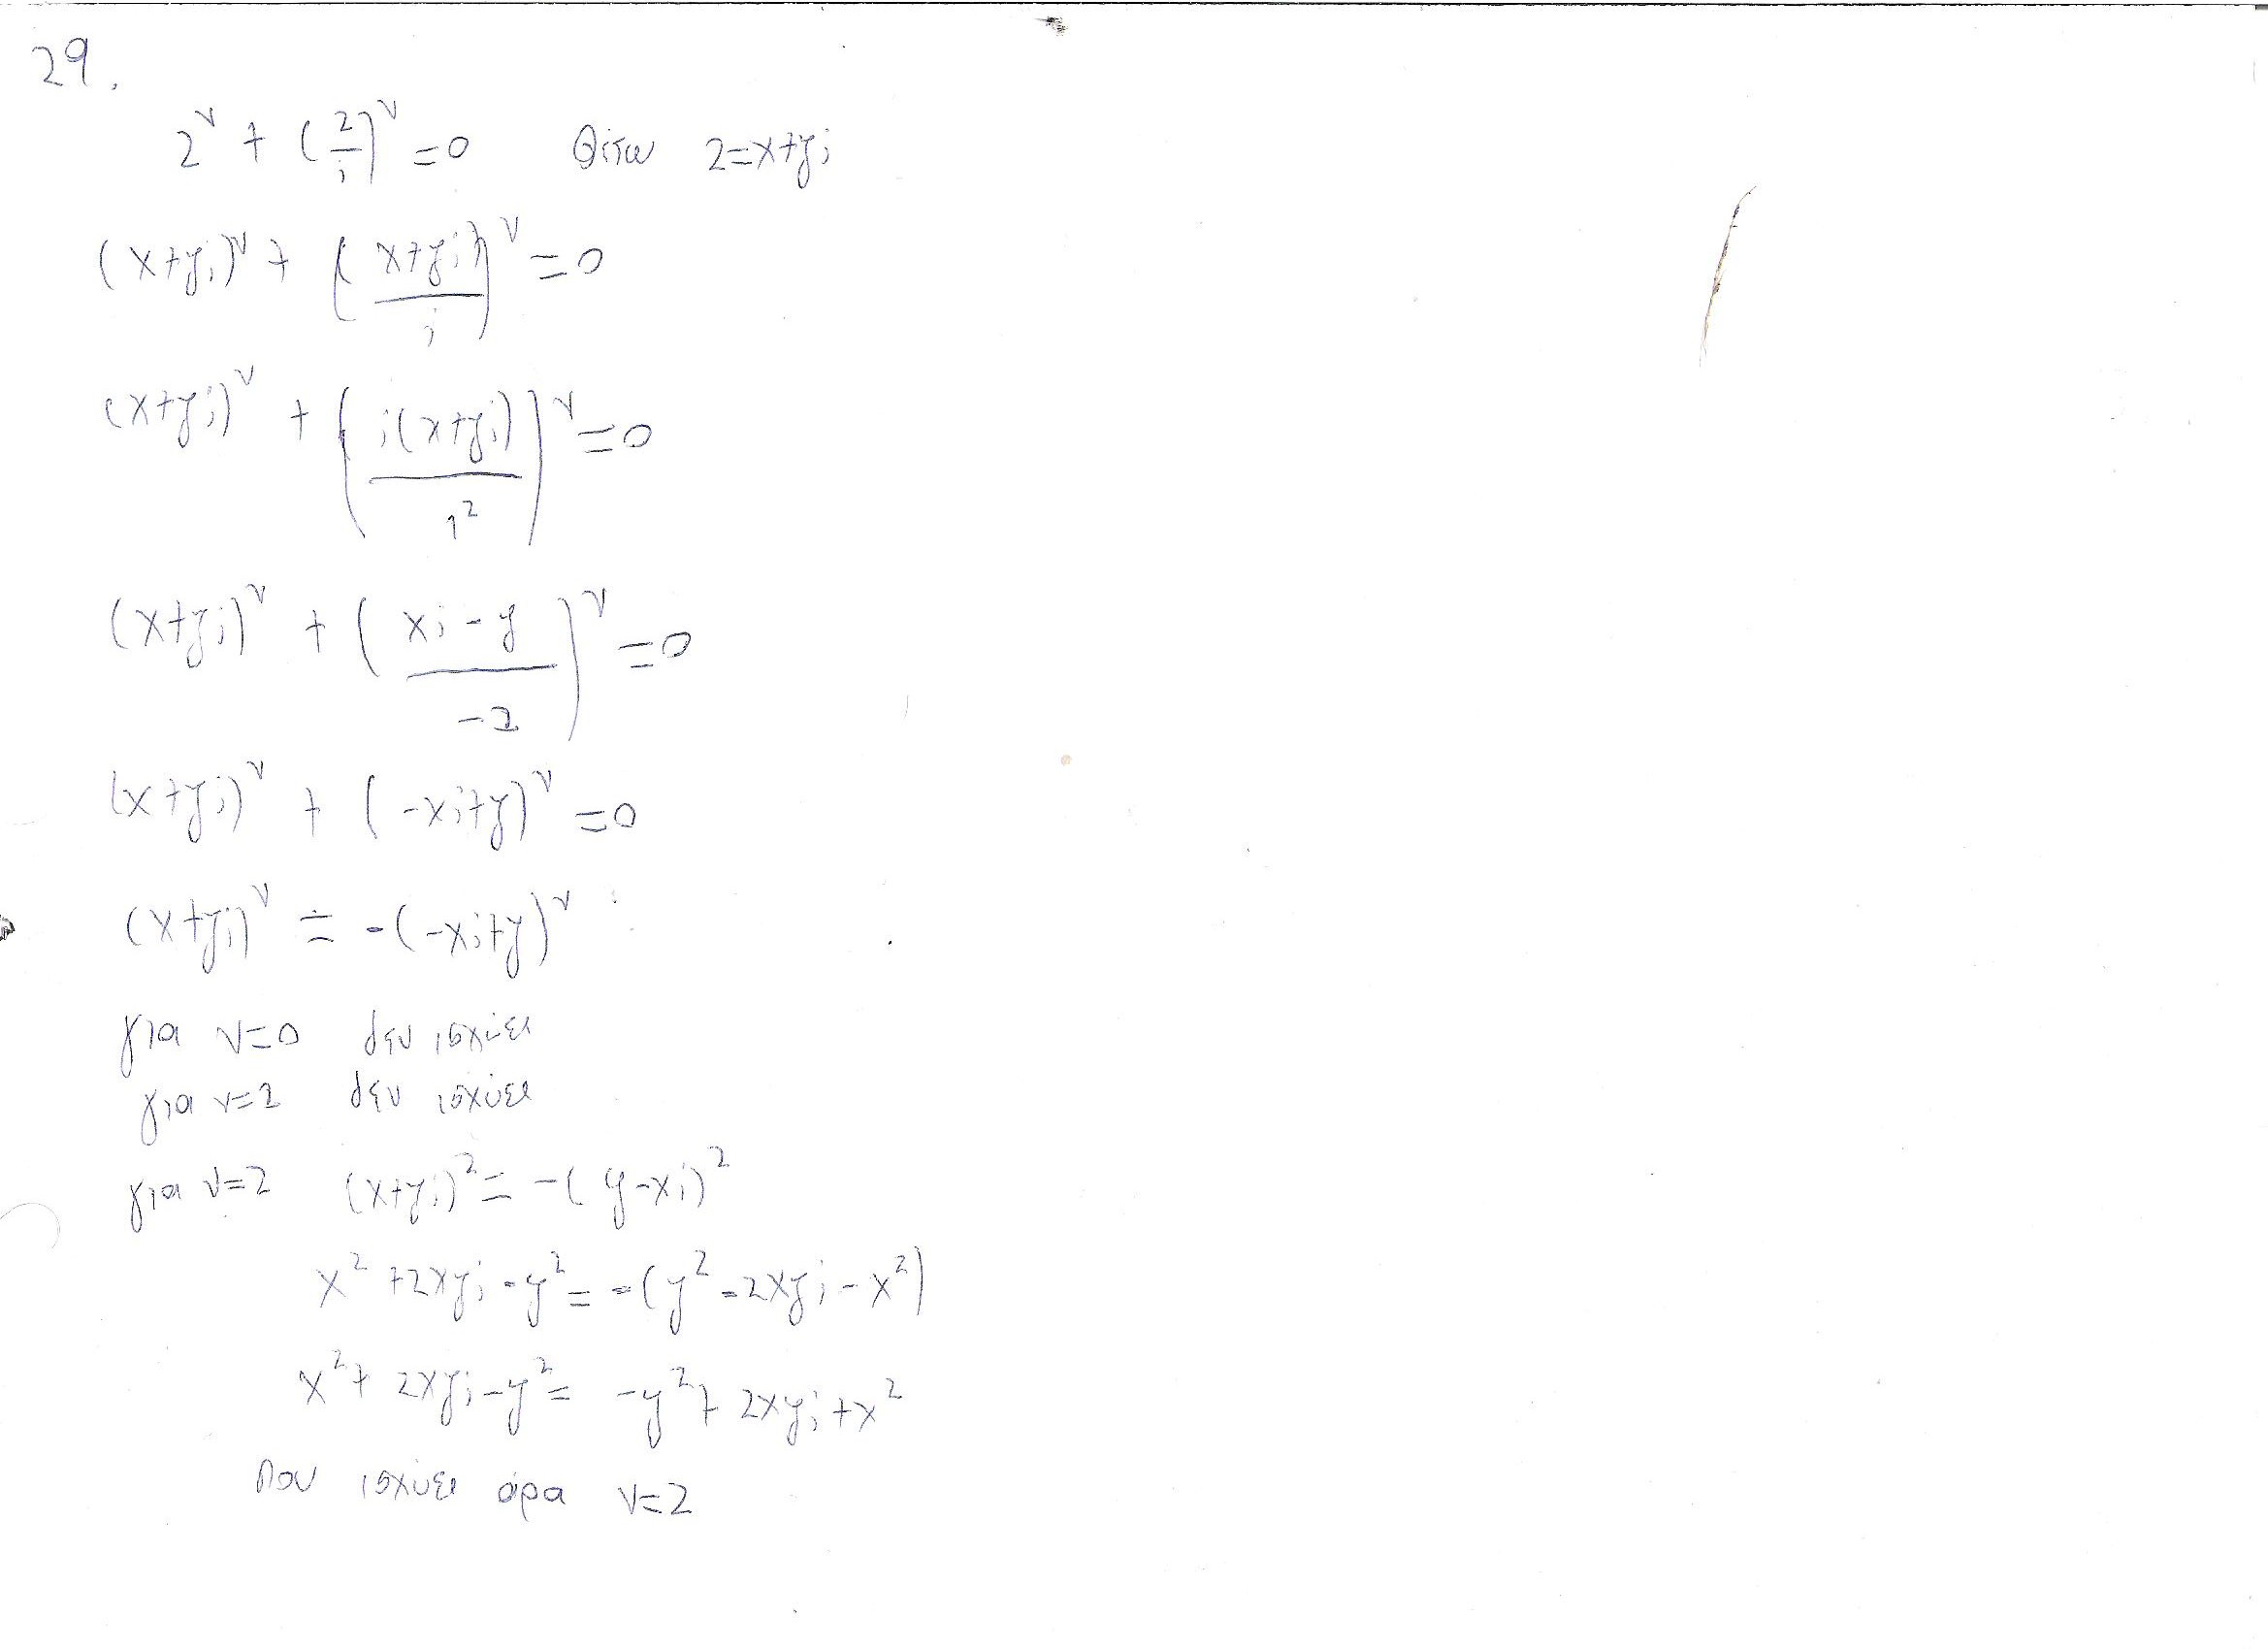 29.
2^ν + (2/i)^ν = 0 Θέτω 2=x+yi
(x+yi)^ν + (x+yi/i)^ν = 0
(x+yi)^ν + (i(x+yi)/i^2)^ν = 0
(x+yi)^ν + (xi-y/-1)^ν = 0
(x+yi)^ν + (-xi+y)^ν = 0
(x+yi)^ν = -(-xi+y)^ν
για ν=0 δεν ισχύει
για ν=1 δεν ισχύει
για ν=2 (x+yi)^2 = -(y-xi)^2
x^2+2xyi-y^2 = -(y^2-2xyi-x^2)
x^2+2xyi-y^2 = -y^2+2xyi+x^2
που ισχύει άρα ν=2